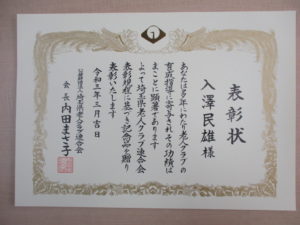 表彰状
入澤民雄様
あなたは多年にわたり老人クラブの
育成指導に寄与されその功績は
まことに顕著であります
よって埼玉県老人クラブ連合会
表彰規程に基づき記念品を贈り
表彰いたします
令和三年三月吉日
公益財団法人埼玉県老人クラブ連合会
会長 内田まさ子